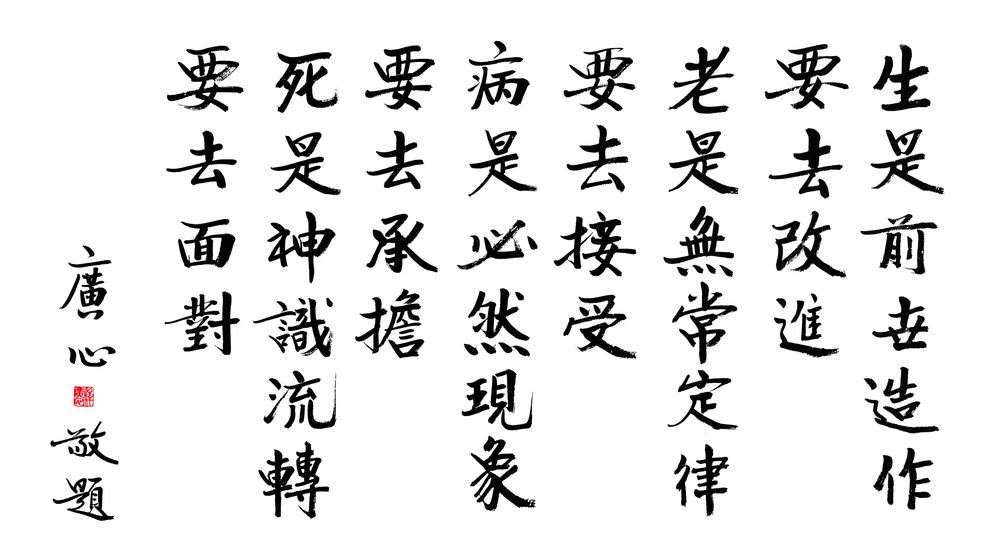 生是前世造作
要去改進
老是無常定律
要去接受
病是必然現象
要去承擔
死是神識流轉
要去面對
廣心敬題